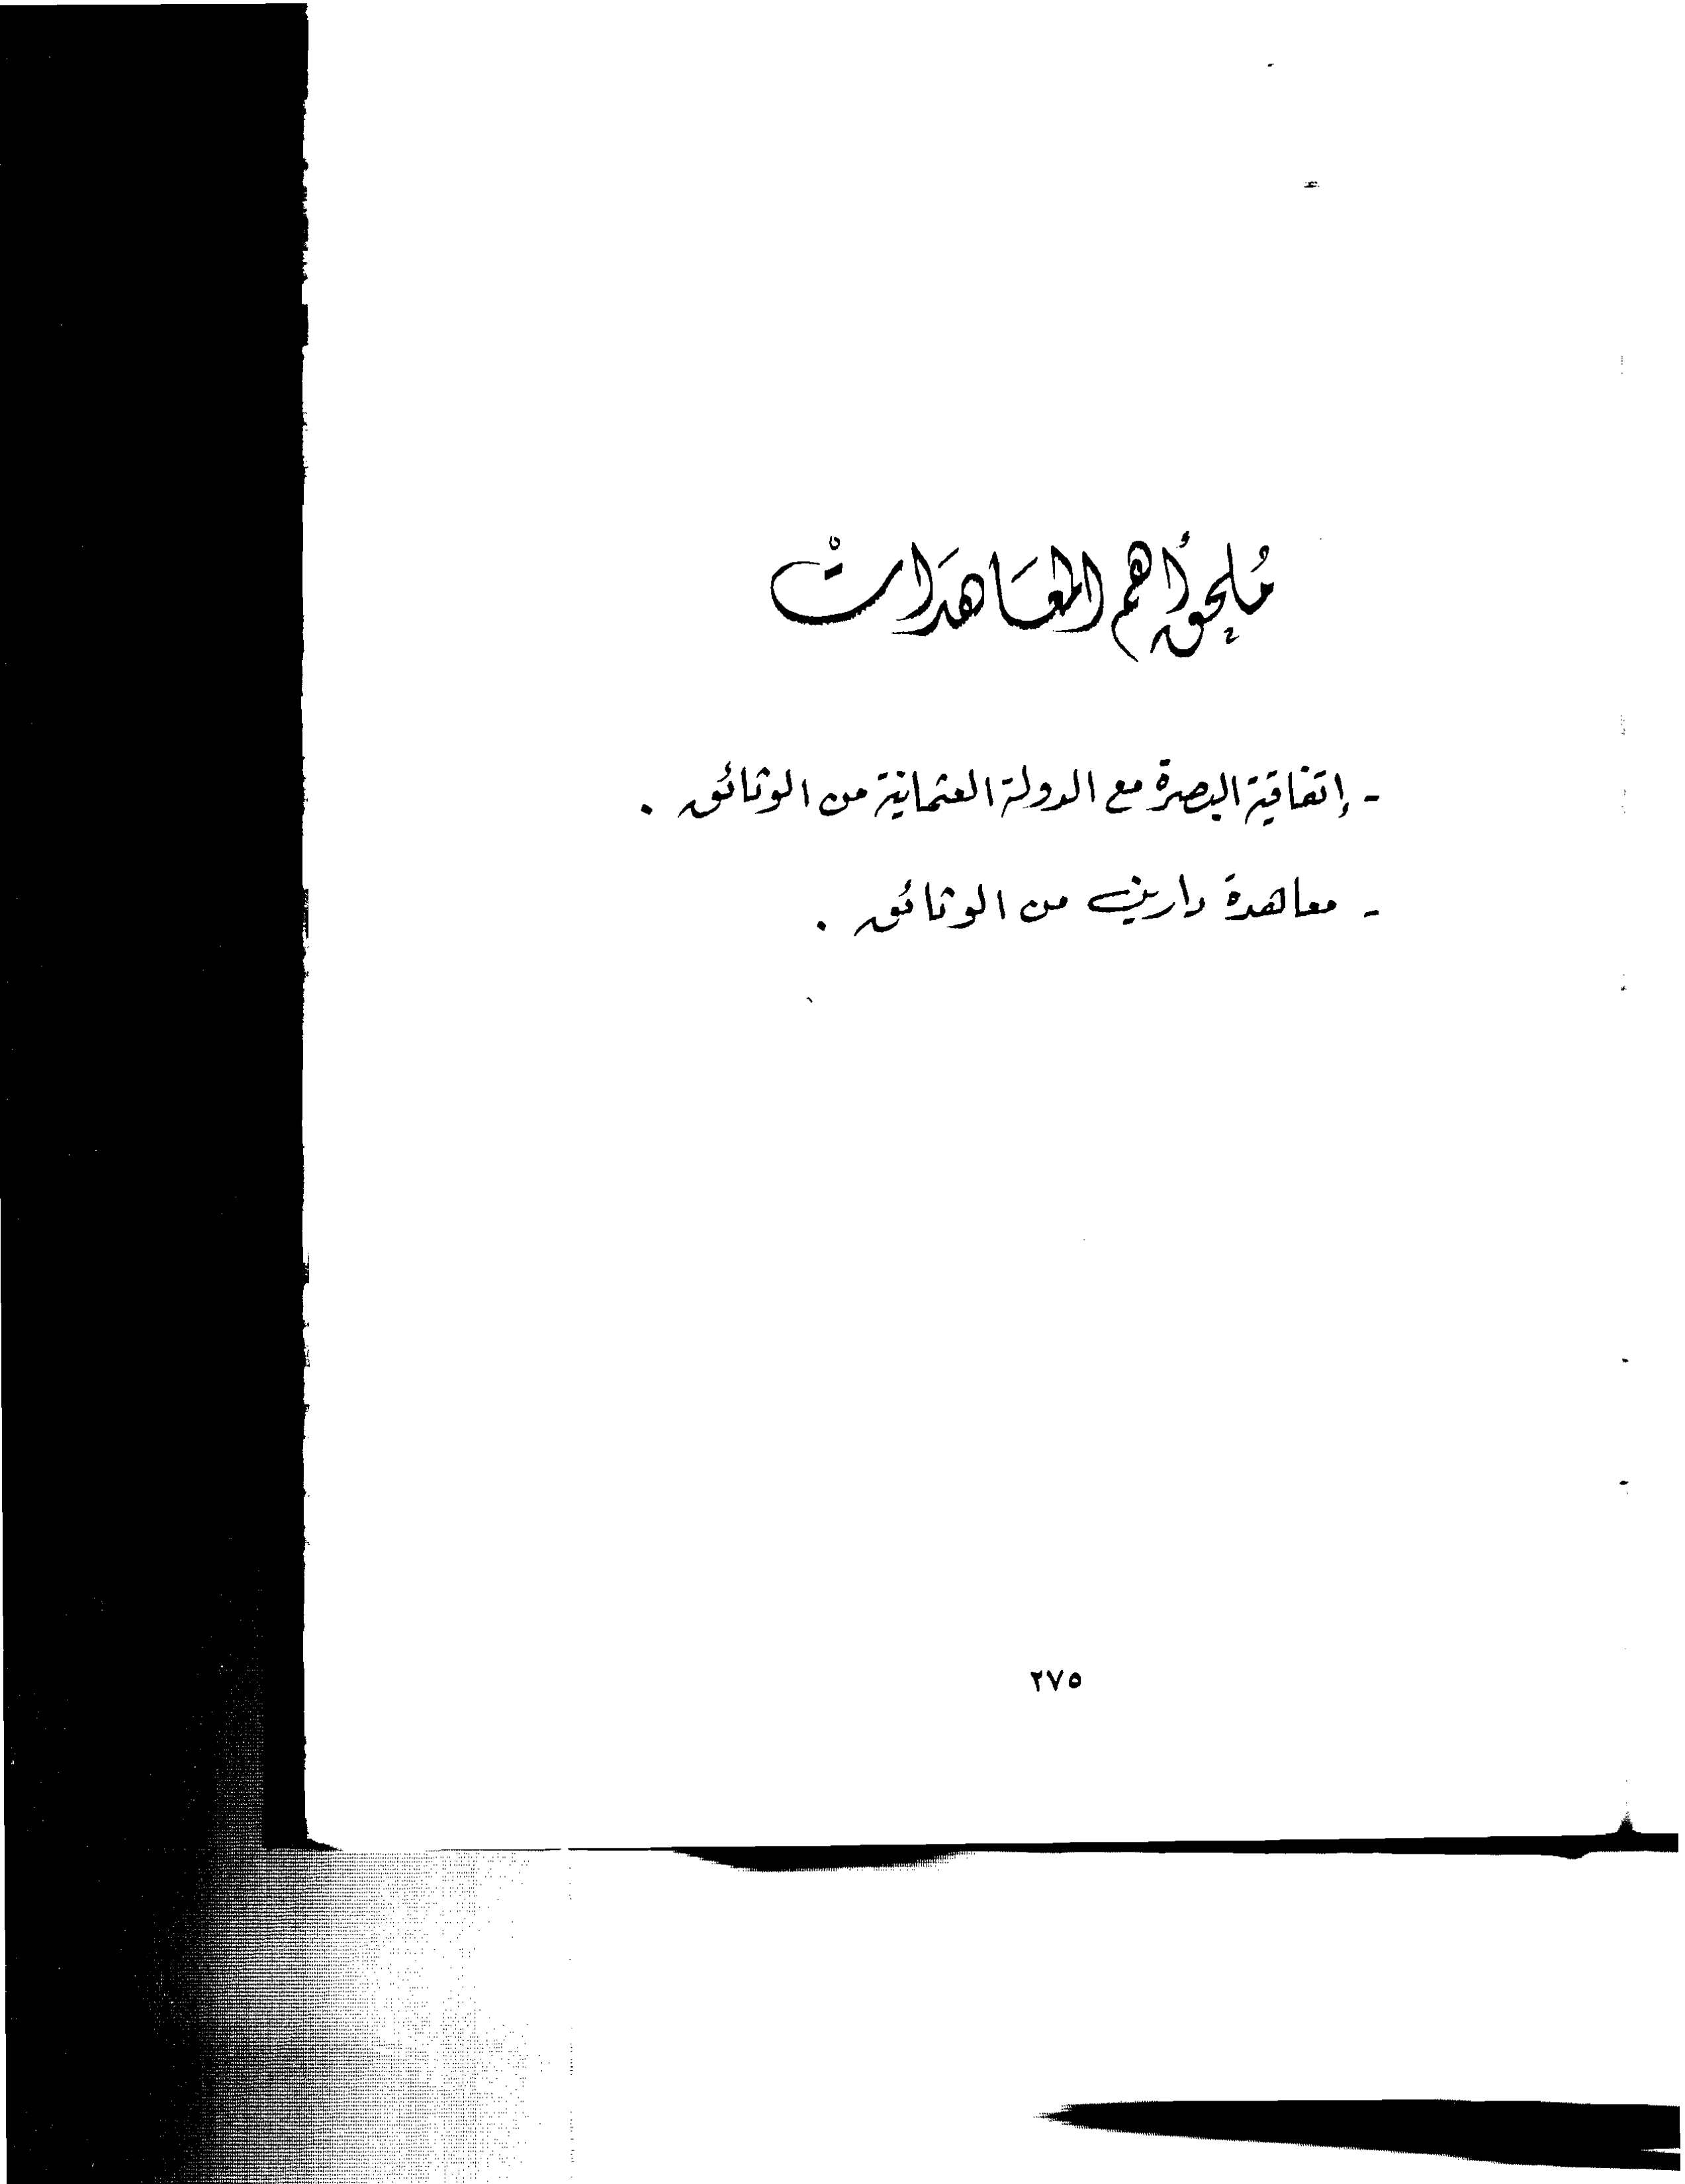 مُلحِق أهم المعَاهدَاتْ
- إتفاقية البصرة مع الدولة العثمانية من الوثائق .
- معاهدة دارين من الوثائق .
٢٧٥